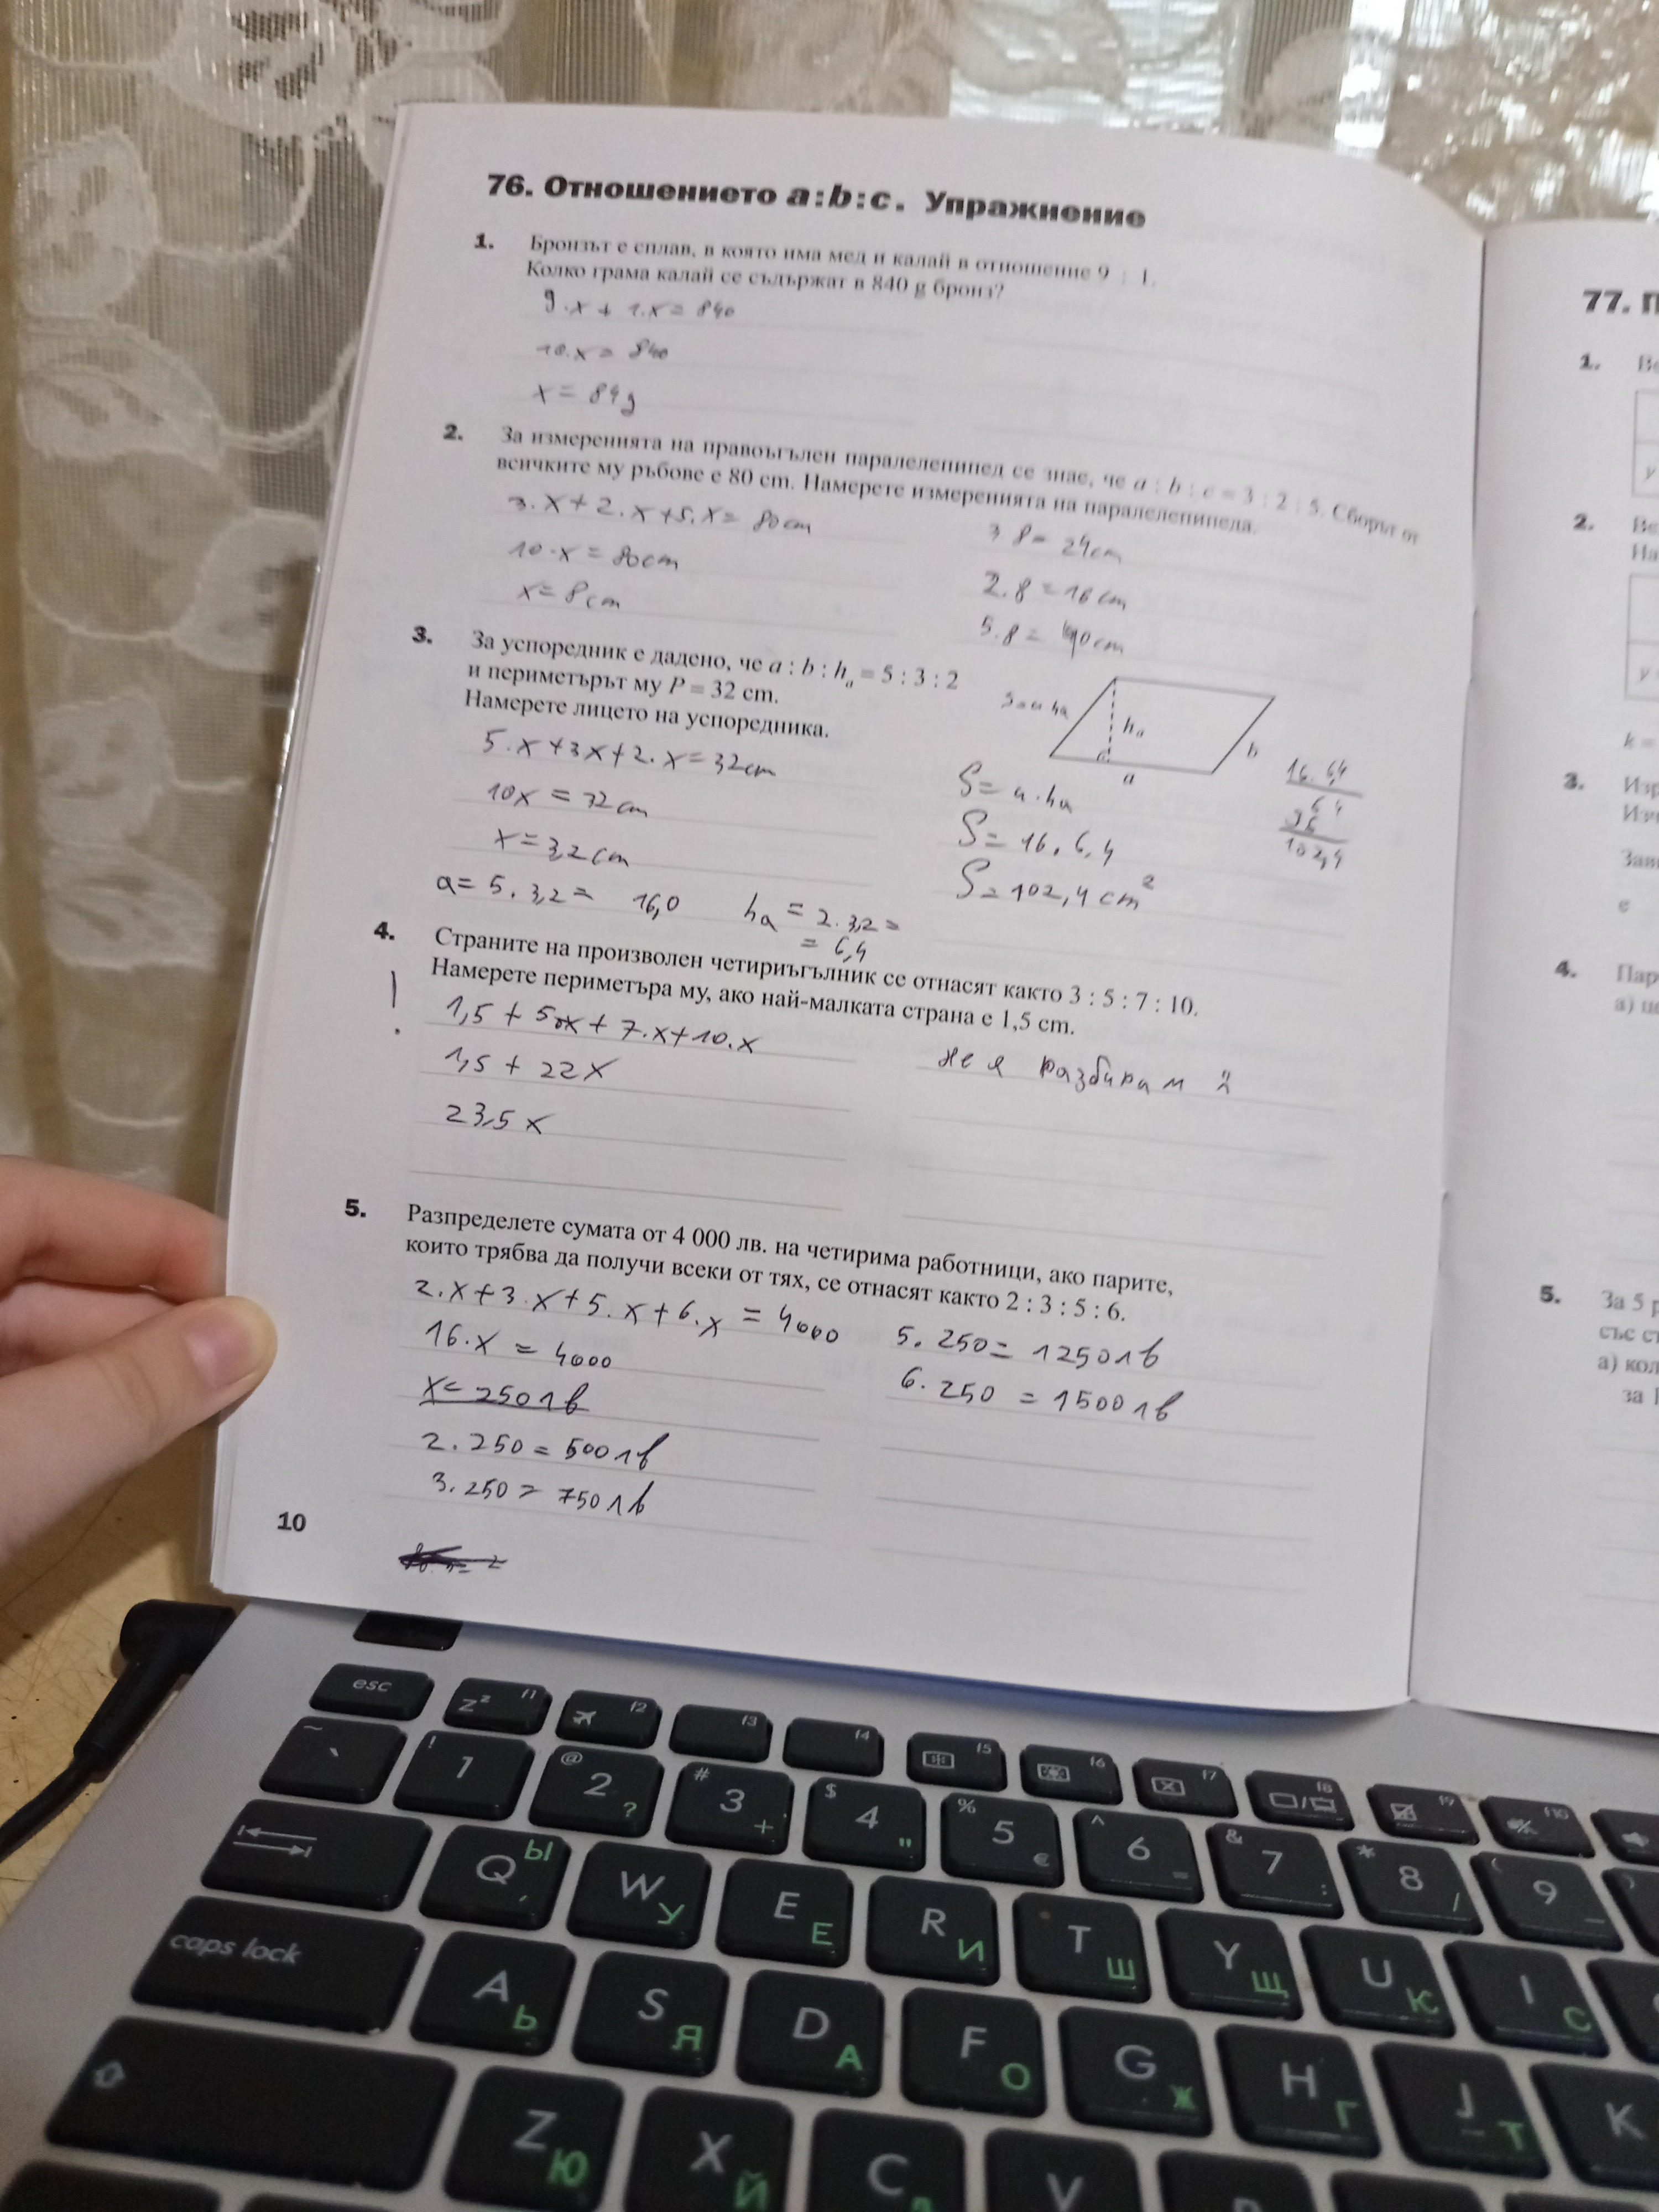 76. Отношението a:b:c. Упражнение
1. Бронзът е сплав, в която има мед и калай в отношение 9 : 1.
Колко грама калай се съдържат в 840 g бронз?
9.x + 1.x = 840
10.x = 840
x = 84g
2. За измеренията на правоъгълен паралелепипед се знае, че a : b : c = 3 : 2 : 5. Сборът от
всичките му ръбове е 80 cm. Намерете измеренията на паралелепипеда.
3.x + 2.x + 5.x = 80cm
10.x = 80cm
x = 8cm
3 8 = 24cm
2.8 = 16cm
5.8 = 40cm
3. За успоредник е дадено, че a : b : hₐ = 5 : 3 : 2
и периметърът му P = 32 cm.
Намерете лицето на успоредника.
S = a ha
hₐ
b
a
5.x + 3x + 2.x = 32cm
10x = 32cm
x = 3,2cm
a = 5.3,2 = 16,0
ha = 2.3,2 =
= 6,4
S = a.ha
S = 16.6,4
S = 102,4 cm²
16.6,4
64
102,4
4. Страните на произволен четириъгълник се отнасят както 3 : 5 : 7 : 10.
Намерете периметъра му, ако най-малката страна е 1,5 cm.
!
1,5 + 5.x + 7.x + 10.x
1,5 + 22x
23,5x
не я разбирам
5. Разпределете сумата от 4 000 лв. на четирима работници, ако парите,
които трябва да получи всеки от тях, се отнасят както 2 : 3 : 5 : 6.
2.x + 3.x + 5.x + 6.x = 4000
16.x = 4000
x = 250лв
2.250 = 500лв
3.250 = 750лв
5.250 = 1250лв
6.250 = 1500лв
10
77.
1.
y
2.
На
y
k =
3.
e
4.
а)
5. За 5
със
а)
за
esc
z² f1
f2
f3
f4
f5
f6
f7
f8
f9
f10
~ `
! 1
@ 2 ?
# 3 +
$ 4 "
% 5 €
^ 6 =
& 7 :
* 8 /
( 9 _
)
Q Ы ,
W У
E Е
R И
T Ш
Y Щ
U К
I С
caps lock
A Ь
S Я
D А
F О
G Ж
H Г
J Т
K
Z Ю
X Й
C
V